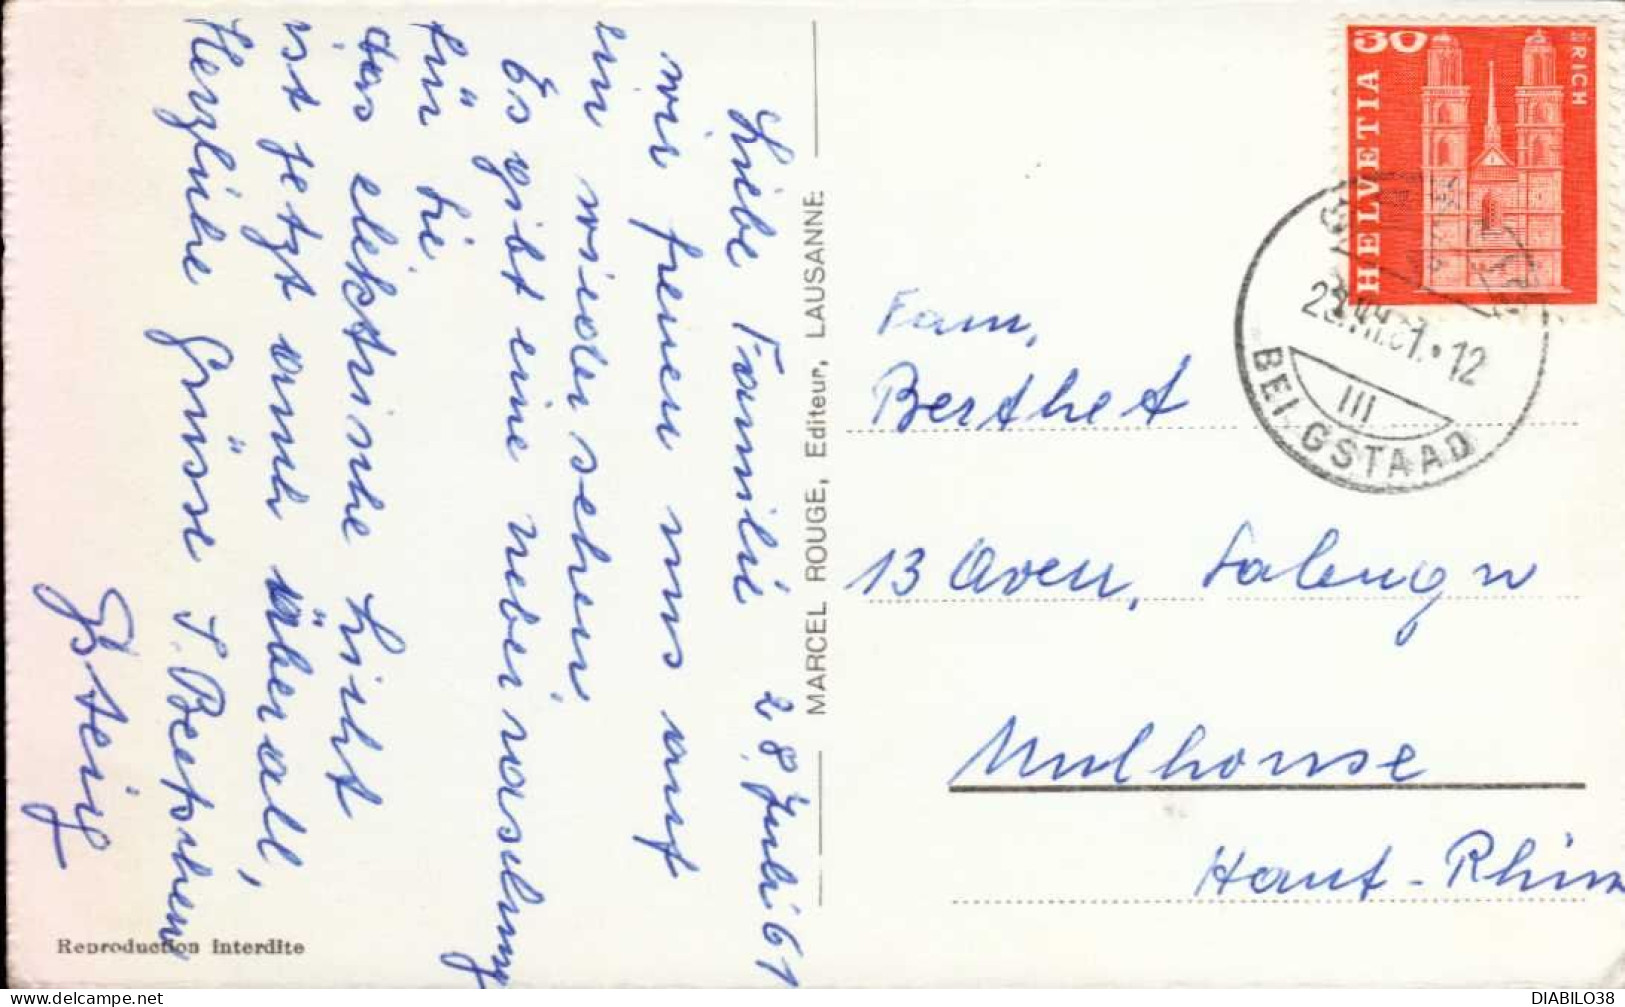 Liebe Familie 28. Juli 61
wir freuen uns auf
ein wiedersehen
Es gibt eine neberraschung
für Sie
das elektrische Licht
ist jetzt auch überall,
Herzliche Grüsse S. Beetschen
Gsteig
Reproduction interdite
MARCEL ROUGE, Editeur, LAUSANNE
HELVETIA
30
ZÜRICH
.VII.61.-12
III
BEI GSTAAD
Fam,
Berthet
13 Aven, Salengro
Mulhouse
Haut-Rhin
DIABILO38